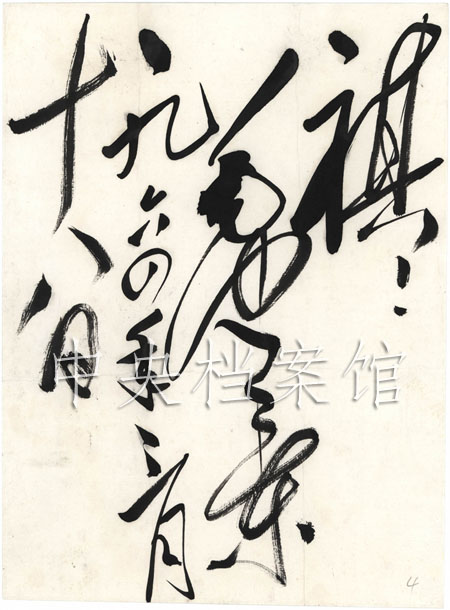 祺！
毛泽东
一九六四年三月
十八日
中央档案馆
4